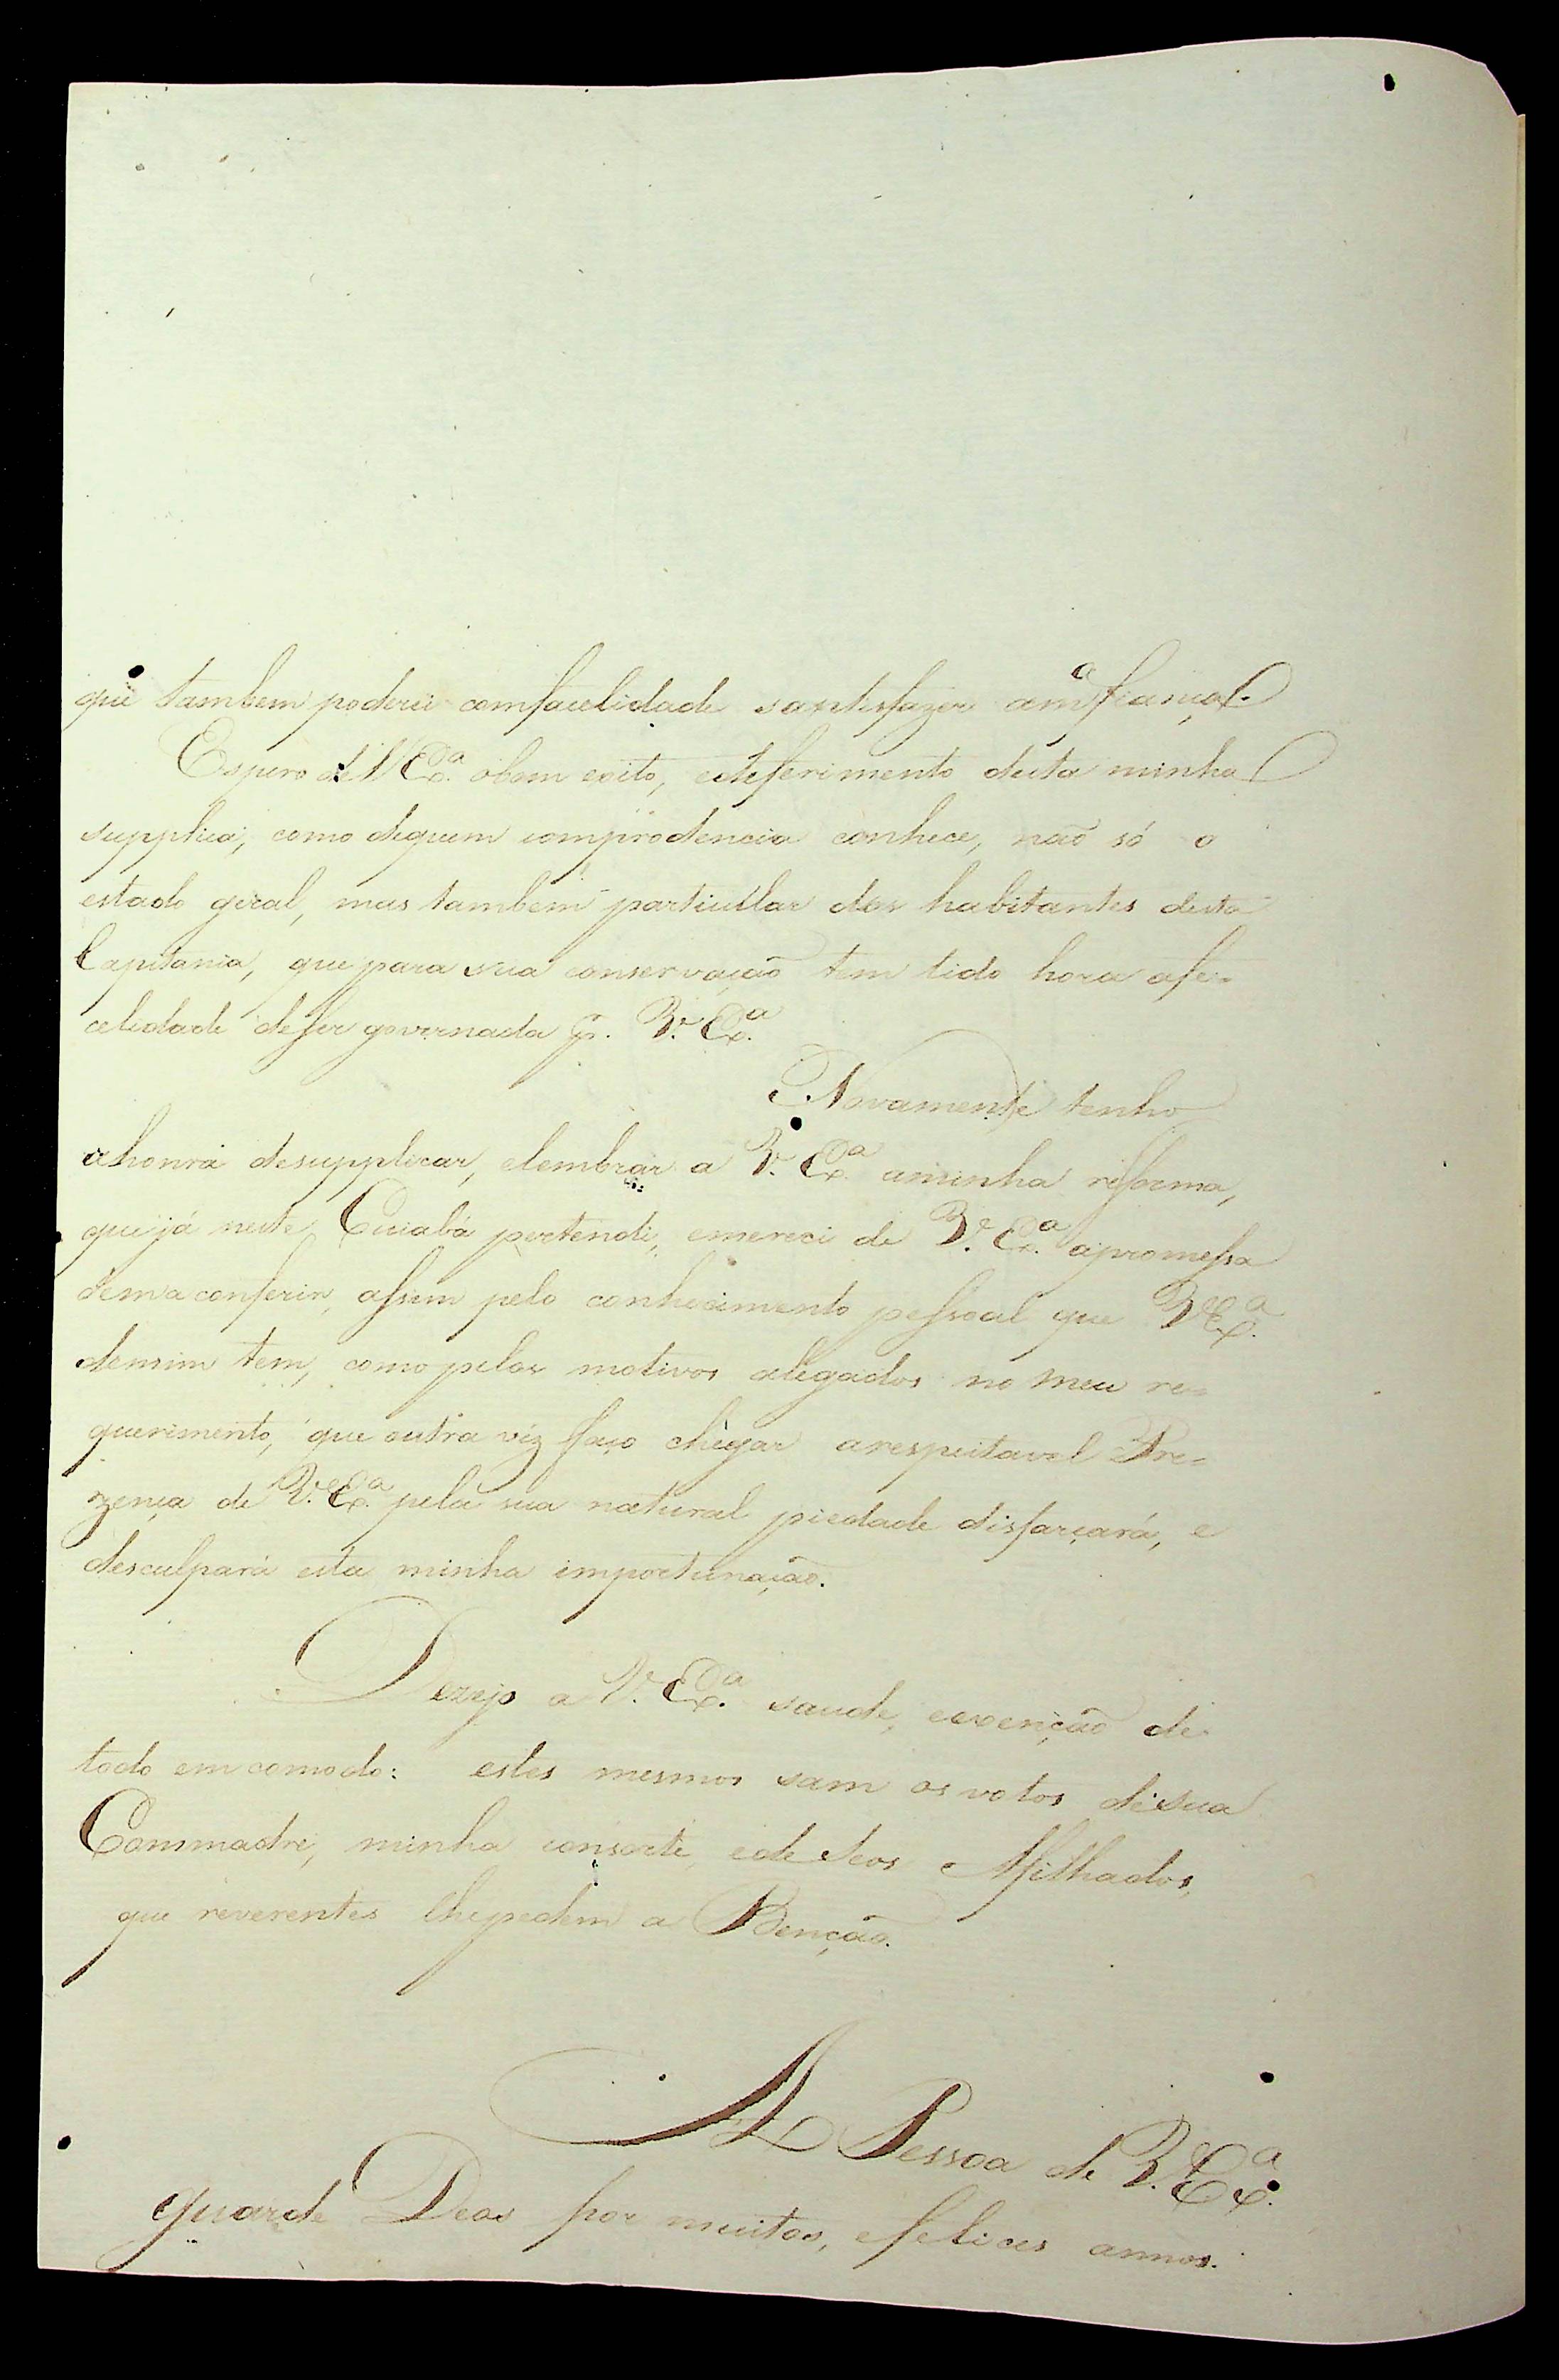 que tambem poderei comfacelidade santisfazer am.ª fiança.
Espero de V. Ex.ª obom exito, edeferimento desta minha
supplica, como dequem comprodencia conhece, naõ só o
estado geral, mas tambem particullar dos habitantes desta
Capitania, que para sua conservaçaõ tem tido hora afe=
celidade deser governada p. V. Ex.ª
Novamente tenho
ahonra desupplicar, elembrar a V. Ex.ª aminha reforma,
que já neste Cuiabá pertendi, emereci de V. Ex.ª apromessa
dema conferir, assim pelo conhecimento pessoal que V. Ex.ª
demim tem, como pelos motivos alegados no meu re=
querimento, que outra vez faço chegar arespeitavel Pre=
zença de V. Ex.ª pela sua natural piedade disfarçará, e
desculpará esta minha importunaçaõ.
Dezejo a V. Ex.ª saude, eexençaõ de
todo emcomodo: estes mesmos sam os votos desua
Commadre, minha consorte, ede Seos Afilhados,
que reverentes lhepedem a Bençaõ.
A Pessoa de V. Ex.ª
guarde Deos por muitos, efelices annos.